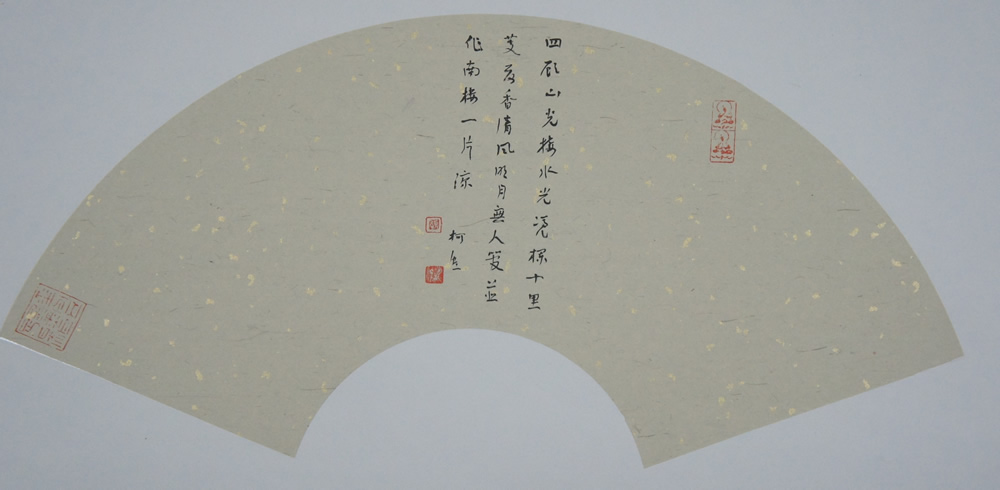 四顾山光接水光凭栏十里
芰荷香清风明月無人管並
作南楼一片涼
柯